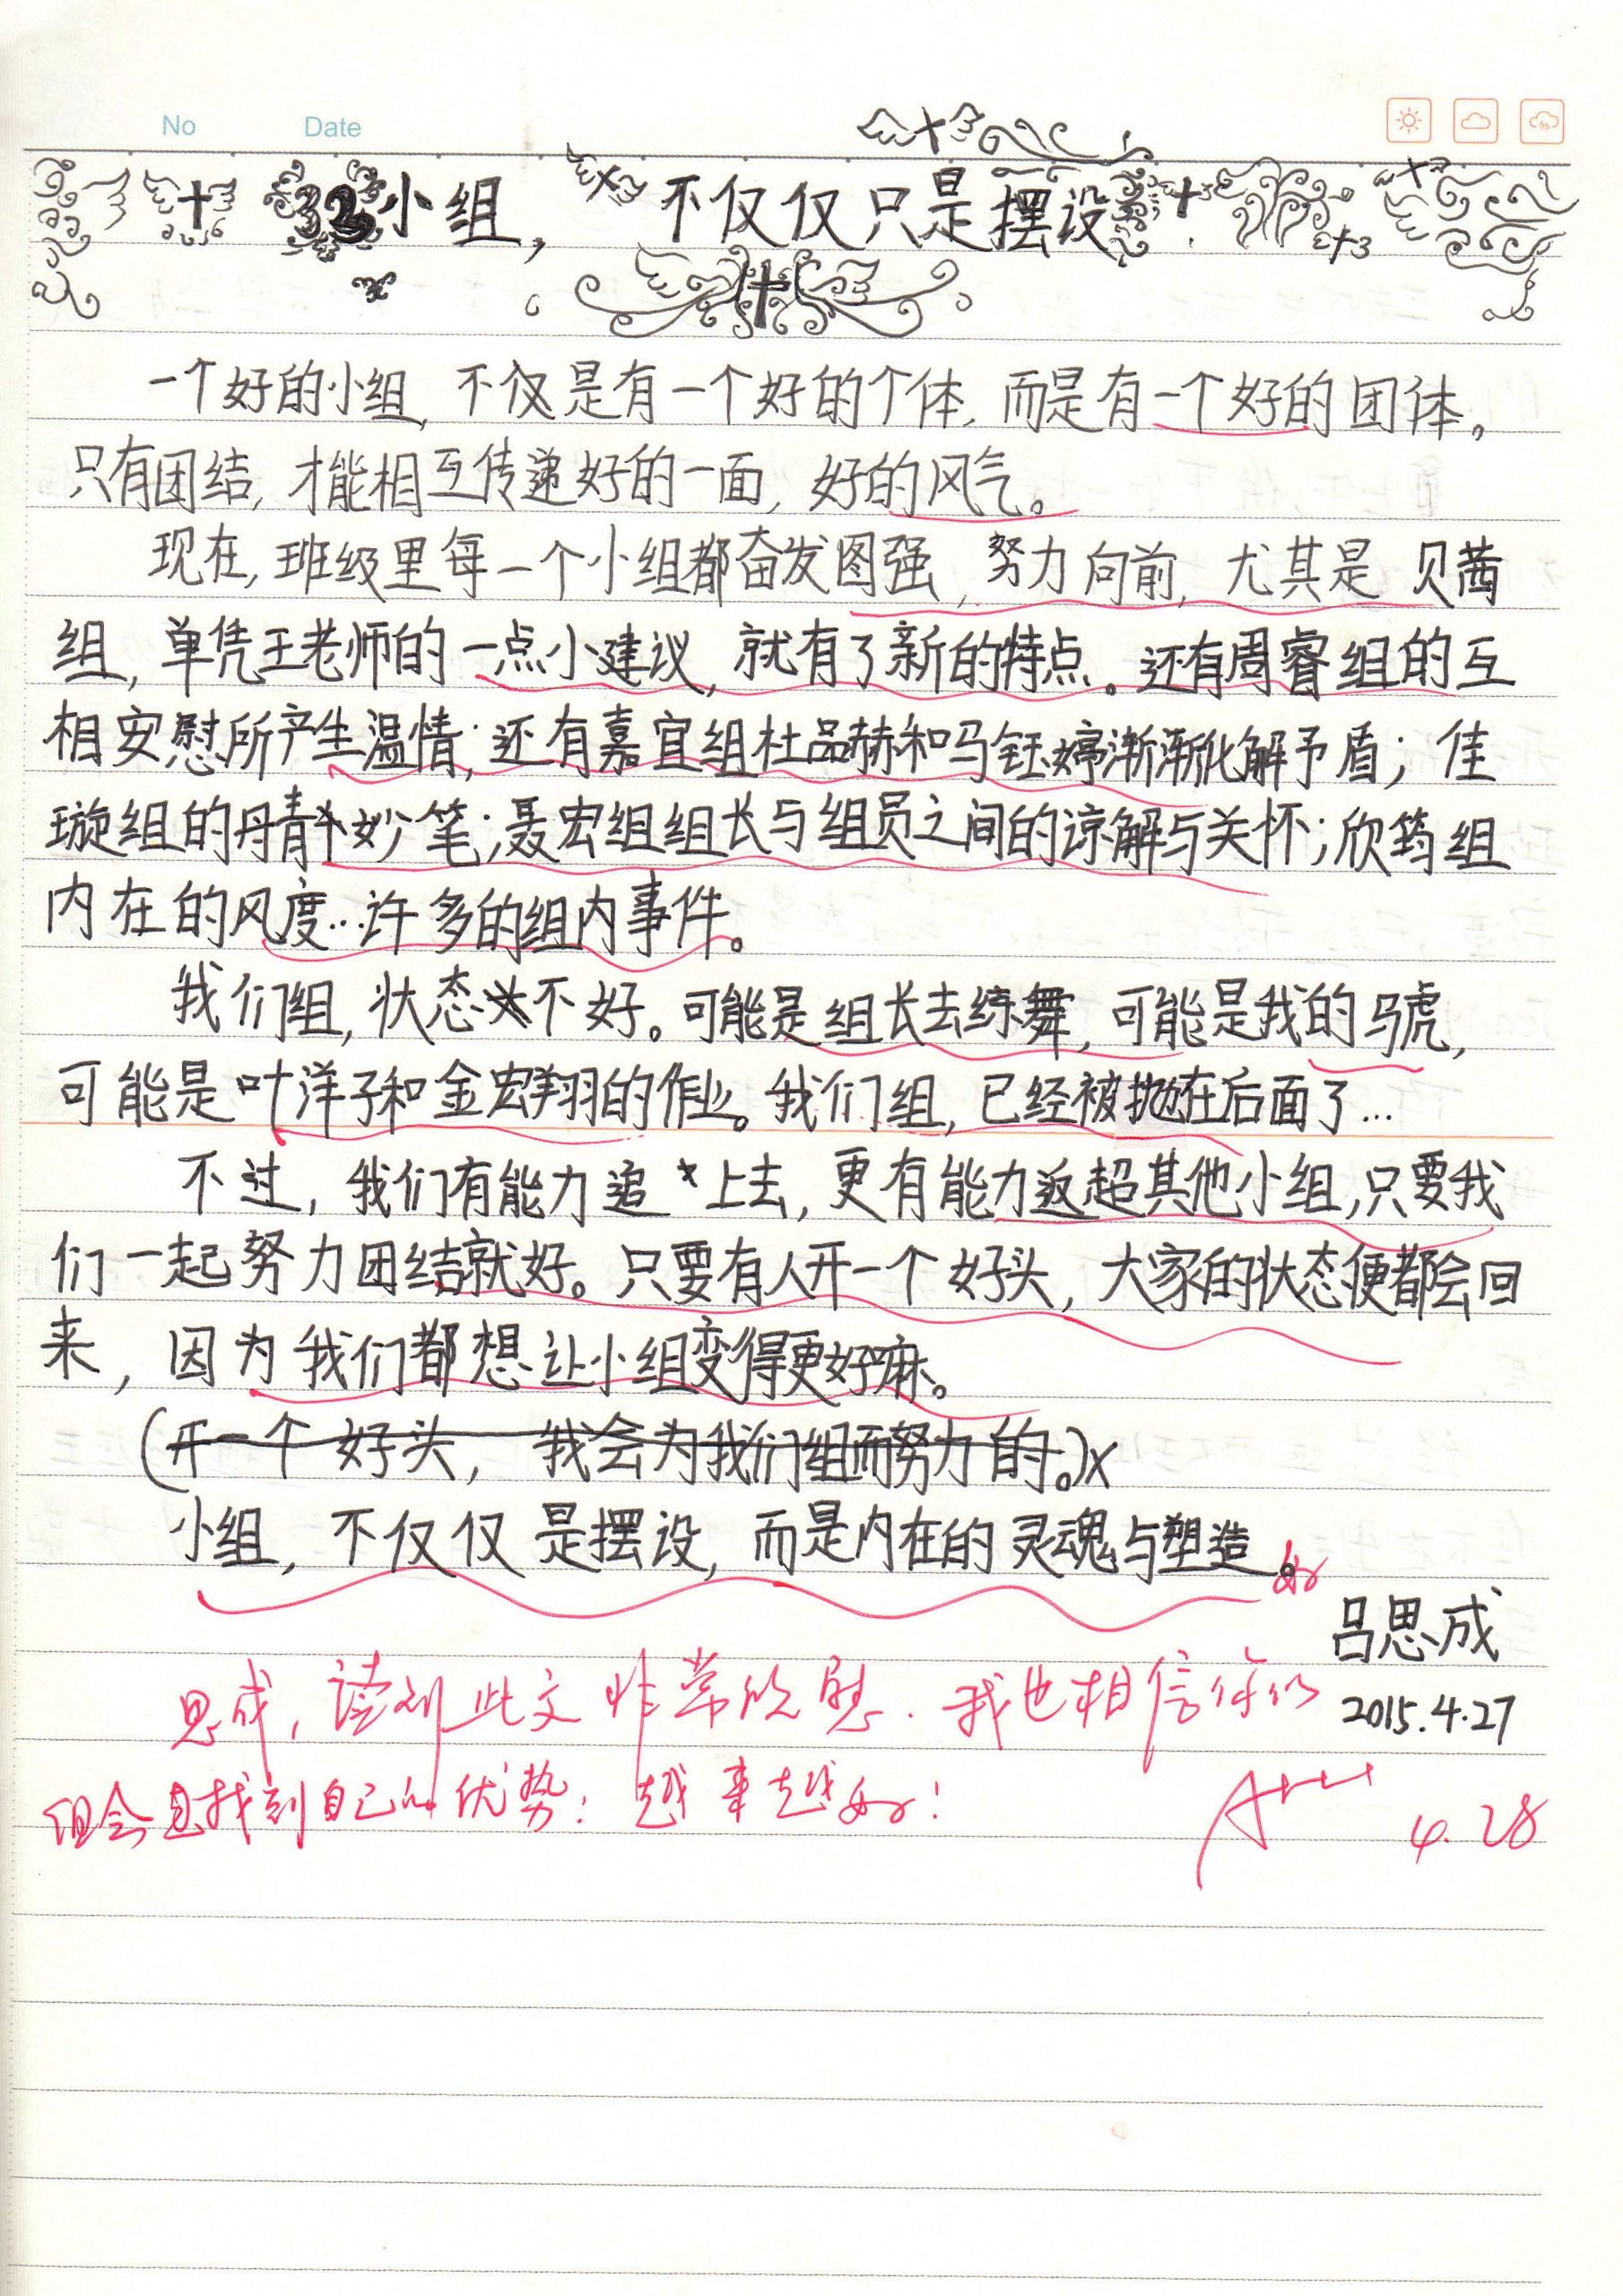 No Date
小组，不仅仅只是摆设
一个好的小组，不仅是有一个好的个体，而是有一个好的团体。
只有团结，才能相互传递好的一面，好的风气。
现在，班级里每一个小组都奋发图强，努力向前，尤其是贝茜
组，单凭王老师的一点小建议，就有了新的特点。还有周睿组的互
相安慰所产生温情；还有嘉宜组杜品赫和马钰婷渐渐化解矛盾；佳
璇组的丹青妙笔；聂宏组组长与组员之间的谅解与关怀；欣筠组
内在的风度…许多的组内事件。
我们组，状态不好。可能是组长去练舞，可能是我的马虎，
可能是叶洋子和金宏翔的作业。我们组，已经被抛在后面了…
不过，我们有能力追上去，更有能力返超其他小组，只要我
们一起努力团结就好。只要有人开一个好头，大家的状态便都会回
来，因为我们都想让小组变得更好嘛。
（开一个好头，我会为我们组而努力的。）x
小组，不仅仅是摆设，而是内在的灵魂与塑造。
好
吕思成
2015.4.27
思成，读到此文非常欣慰．我也相信你们
组会找到自己的优势；越来越好！
A+++ 4.28